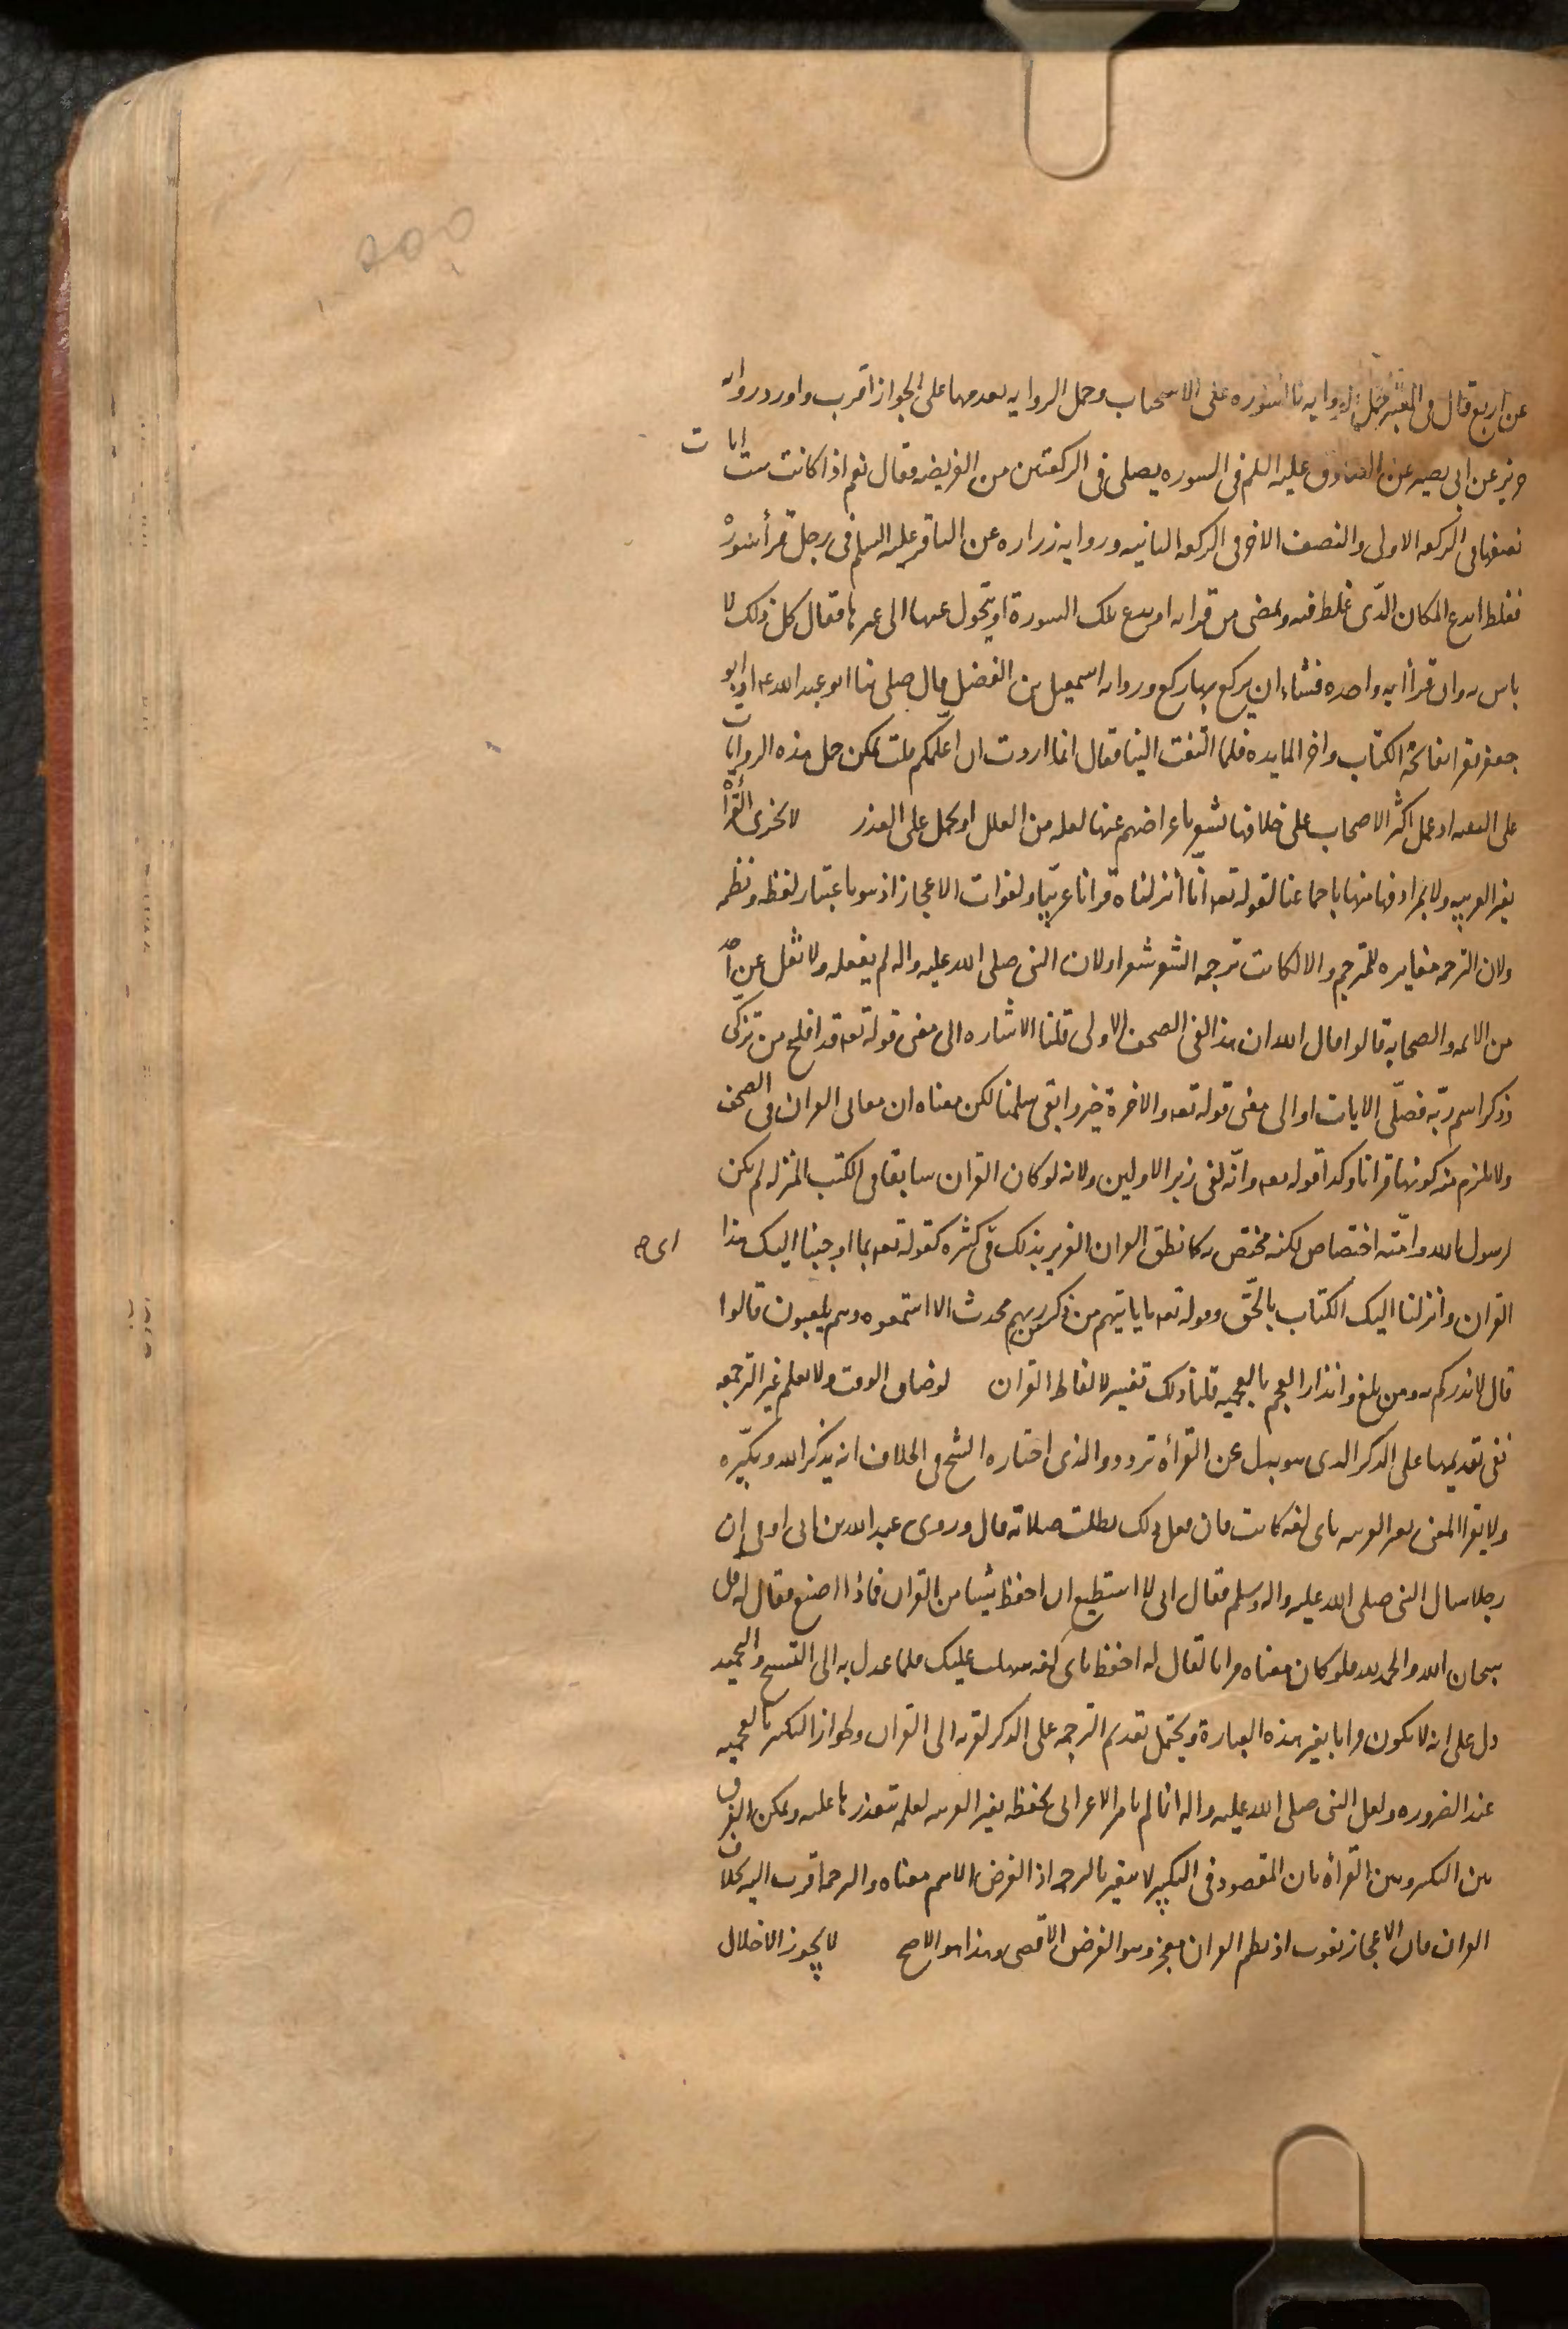 عن اربع قال فى المعتبر حمل الروايه بالسوره على الاستحباب وحمل الروايه بعدمها على الجواز اقرب واورد روايه
حريز عن ابى بصير عن الصادق عليه السلم فى السوره يصلى فى الركعتين من الفريضه فقال نعم اذا كانت ست ايات
نصفها فى الركعه الاولى والنصف الاخر فى الركعه الثانيه وروايه زراره عن الباقر عليه السلم فى رجل قرأ سورة
فغلط ايدع المكان الذى غلط فيه ويمضى من قراته او يدع تلك السورة او يتحول عنها الى غيرها فقال كل ذلك لا
باس به وان قرأ ايه واحده فشاء ان يركع بها ركع وروايه اسمعيل بن الفضل قال صلى بنا ابو عبد الله ع او ابو
جعفر فقرا بفاتحة الكتاب واخر المايده فلما التفت الينا فقال انما اردت ان اعلّمكم قلت يمكن حمل هذه الروايات
على التقيه اذ عمل اكثر الاصحاب على خلافها تشعر باعراضهم عنها لعله من العلل او يحمل على العذر لا يجزى القرأة
بغير العربيه ولا بمرادفها منها باجماعنا لقوله تع انّا أنزلناه قرانا عربيّا ولفوات الاعجاز اذ هو باعتبار لفظه ونظمه
ولان الترجمه مغايره للمترجم والا لكانت ترجمه الشعر شعرا ولان النبى صلى الله عليه واله لم يفعله ولا نقل عن احد
من الائمه والصحابه قالوا قال الله ان هذا لفى الصحف الاولى قلنا الاشاره الى معنى قوله تع قد افلح من تزكّى
وذكر اسم ربّه فصلّى الايات او الى معنى قوله تع والاخرة خير وابقى سلمنا لكن معناه ان معانى القران فى الصحف
ولا يلزم منه كونها قرانا وكذا قوله تع وانّه لفى زبر الاولين ولانه لو كان القران سابقا فى الكتب المنزله لم يكن
لرسول الله وامّته اختصاص لكنه مختص به كما نطق القران العزيز بذلك فى كثره كقوله تع بما اوحينا اليك هذا
القران وأنزلنا اليك الكتاب بالحقّ وقوله تع ما ياتيهم من ذكر من ربهم محدث الا استمعوه وهم يلعبون قالوا
قال لانذركم به ومن بلغ وانذار العجم بالعجميه قلنا ذلك تفسير لالفاظ القران لو ضاق الوقت ولا يعلم غير الترجمه
ففى تقديمها على الذكر الذى هو بدل عن القرأة تردد والذى اختاره الشيخ فى الخلاف انه يذكر الله ويكبّره
ولا يقرا المعنى بغير العربيه باى لغه كانت فان فعل ذلك بطلت صلاته قال وروى عبد الله بن ابى اوفى ان
رجلا سال النبى صلى الله عليه واله وسلم فقال انى لا استطيع ان احفظ شيئا من القران فماذا اصنع فقال له قل
سبحان الله والحمد لله فلو كان معناه قرانا لقال له احفظ باى لغه سهلت عليك فلما عدل به الى التسبيح والتحميد
دل على انه لا يكون قرانا بغير هذه العبارة ويحتمل تقديم الترجمه على الذكر لقربه الى القران ولجواز التكبير بالعجميه
عند الضروره ولعل النبى صلى الله عليه واله انما لم يامر الاعرابى بحفظه بغير العربيه لعلمه بتعذرها عليه ويمكن الفرق
بين التكبير وبين القرأة بان المقصود فى التكبير لا يتغير بالترجمه اذ الغرض الاهم معناه والترجمه اقرب اليه بخلاف
القران فان الاعجاز يفوت اذ نظم القران معجز وهو الغرض الاقصى وهذا هو الاصح لا يجوز الاخلال